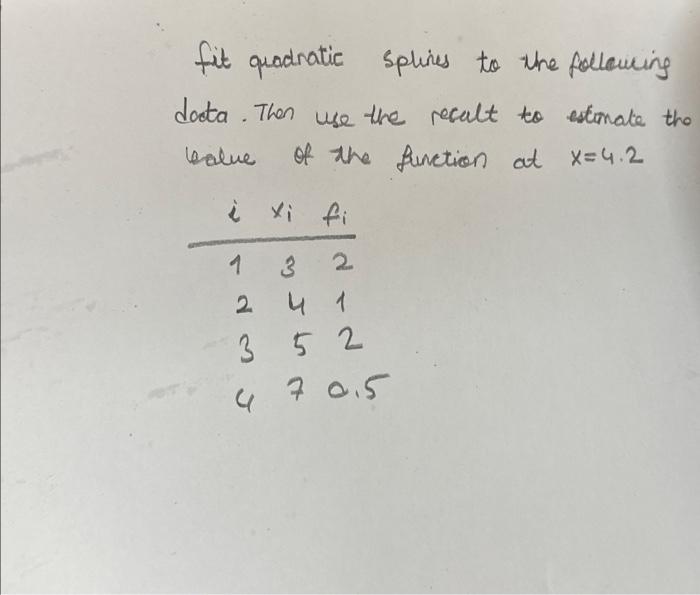 fit quadratic splines to the following
data. Then use the result to estimate the
value of the function at x=4.2
i xi fi
1 3 2
2 4 1
3 5 2
4 7 0.5